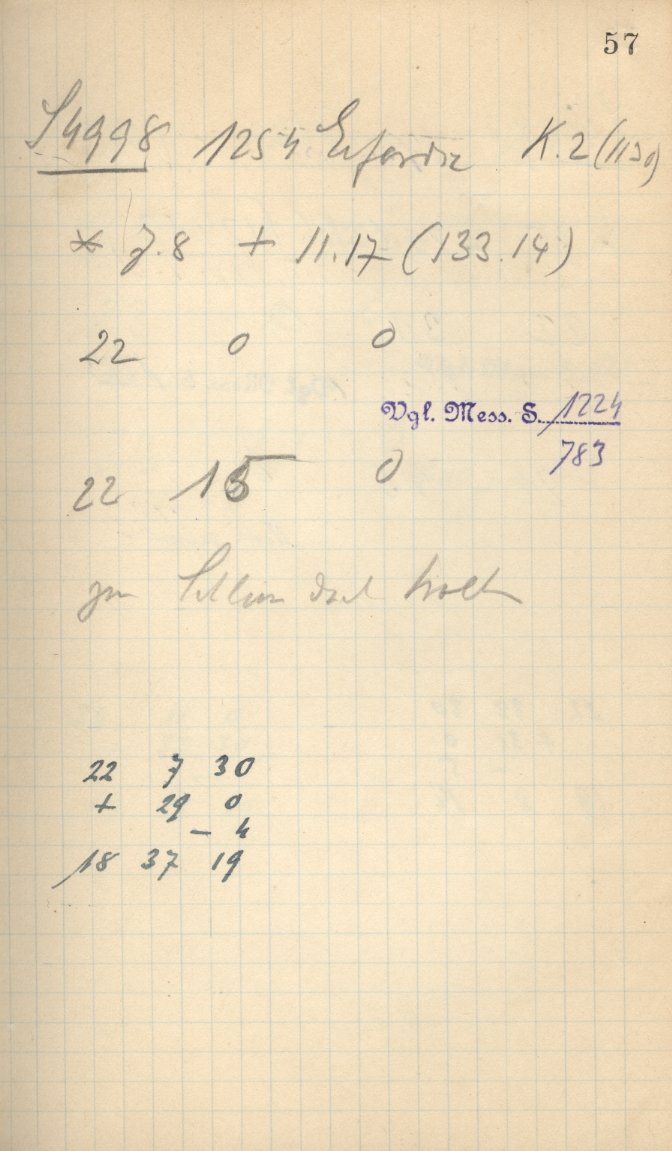 57
S4998 1254 Erfordia K.2 (1130)
* 7.8 + 11.17 (133.14)
22 0 0
Vgl. Mess. S. 1224
783
22 15 0
zum Schluss
22 7 30
+ 29 0
- 4
18 37 19